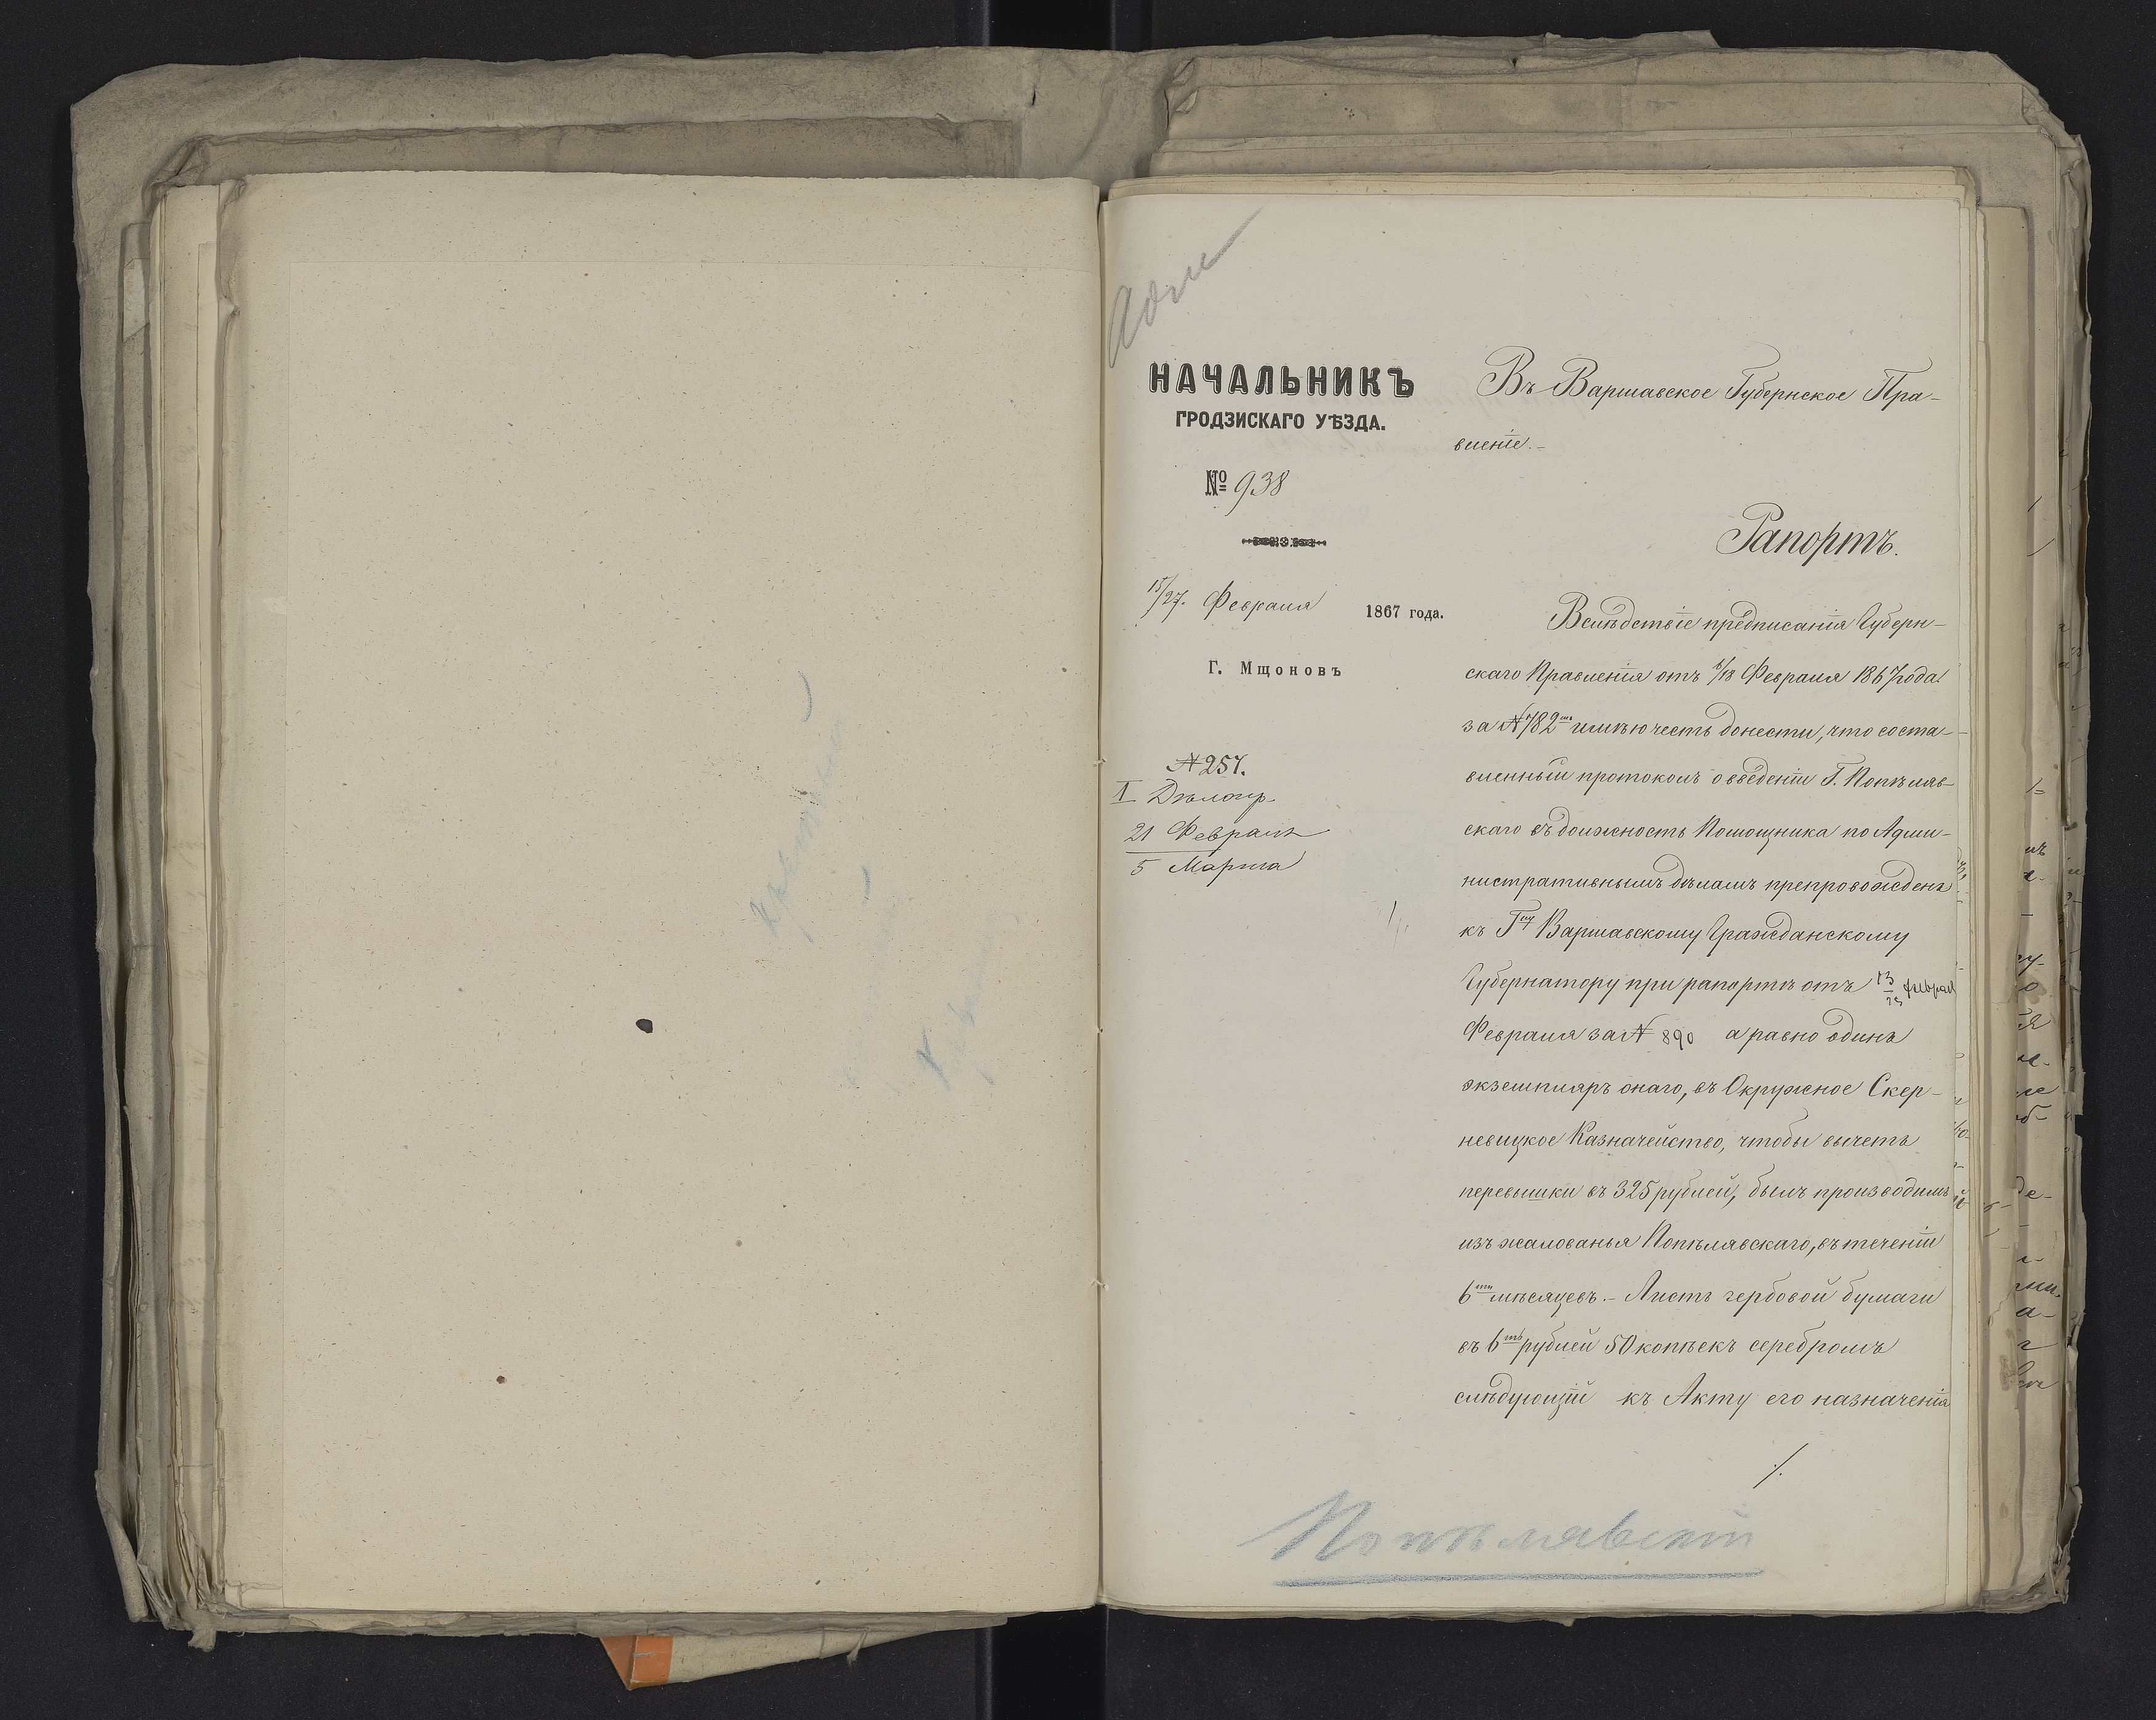 Адм
НАЧАЛЬНИКЪ
ГРОДЗИСКАГО УѢЗДА.
№ 938
15/27. Февраля 1867 года.
Г. Мщоновъ
№ 257.
I
21 Февраля
5 Марта
Въ Варшавское Губернское Пра-
вленіе.-
Рапортъ.
Вслѣдствіе предписанія Губерн-
скаго Правленія отъ 6/18 Февраля 1867 года
за № 782 имѣю честь донести, что соста-
вленный протоколъ о введеніи Г. Попѣляв-
скаго въ должность Помощника по Адми-
нистративнымъ дѣламъ препровожденъ
къ Гну Варшавскому Гражданскому
Губернатору при рапортѣ отъ 13/25 феврал
Февраля за № 890 а равно одинъ
экземпляръ онаго, въ Окружное Скер-
невицкое Казначейство, чтобы вычетъ
перевышки въ 325 рублей, былъ производимъ
изъ жалованья Попѣлявскаго, въ теченіи
6ти мѣсяцевъ.- Листъ гербовой бумаги
въ 6ть рублей 50 копѣекъ серебромъ
слѣдующій къ Акту его назначенія
./.
Попѣлявскій